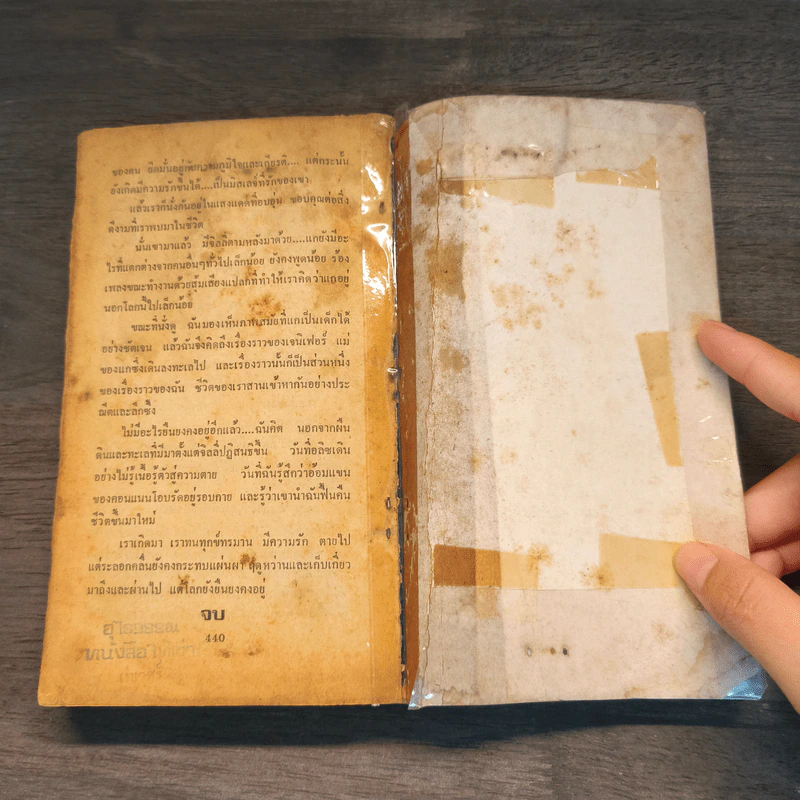 ของตน ยึดมั่นอยู่กับความภูมิใจและเกียรติ.... แต่กระนั้น
ยังเกิดมีความรักขึ้นได้....เป็นมิสเลซ์ที่รักของเขา
แล้วเราก็นั่งกันอยู่ในแสงแดดที่อบอุ่น ขอบคุณต่อสิ่ง
ดีงามที่เราพบมาในชีวิต
นั่นเขามาแล้ว มีจิลลี่ตามหลังมาด้วย....แกยังมีอะ
ไรที่แตกต่างจากคนอื่นๆทั่วไปเล็กน้อย ยังคงพูดน้อย ร้อง
เพลงขณะทำงานด้วยสุ้มเสียงแปลกที่ทำให้เราคิดว่าแกอยู่
นอกโลกนี้ไปเล็กน้อย
ขณะที่นั่งดู ฉันมองเห็นภาพสมัยที่แกเป็นเด็กได้
อย่างชัดเจน แล้วฉันจึงคิดถึงเรื่องราวของเจนิเฟอร์ แม่
ของแกซึ่งเดินลงทะเลไป และเรื่องราวนั้นก็เป็นส่วนหนึ่ง
ของเรื่องราวของฉัน ชีวิตของเราสานเข้าหากันอย่างประ
ณีตและลึกซึ้ง
ไม่มีอะไรยืนยงคงอยู่อีกแล้ว....ฉันคิด นอกจากผืน
ดินและทะเลที่มีมาตั้งแต่จิลลี่ปฏิสนธิขึ้น วันที่อลิซเดิน
อย่างไม่รู้เนื้อรู้ตัวสู่ความตาย วันที่ฉันรู้สึกว่าอ้อมแขน
ของคอนแนนโอบรัดอยู่รอบกาย และรู้ว่าเขานำฉันฟื้นคืน
ชีวิตขึ้นมาใหม่
เราเกิดมา เราทนทุกข์ทรมาน มีความรัก ตายไป
แต่ระลอกคลื่นยังคงกระทบแผ่นผา ฤดูหว่านและเก็บเกี่ยว
มาถึงและผ่านไป แต่โลกยังยืนยงคงอยู่
จบ
440